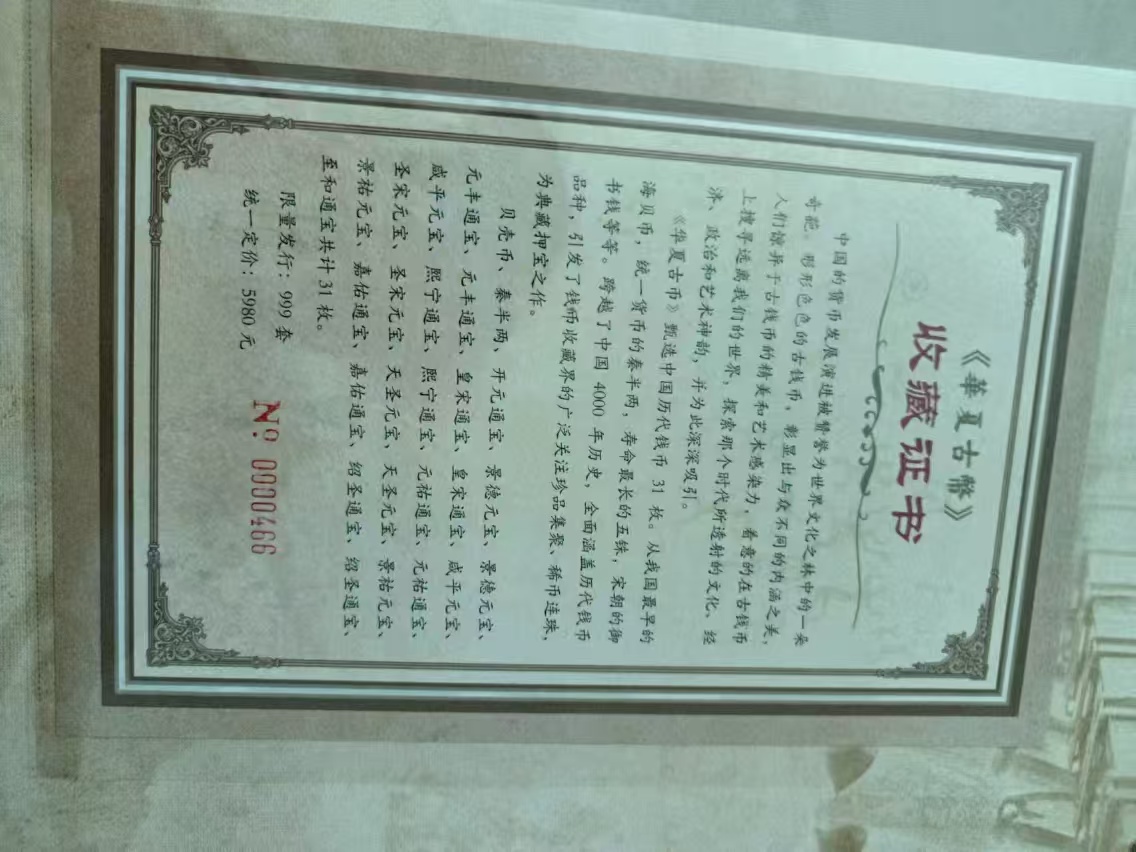 《華夏古幣》
收藏证书
中国的货币发展演进被赞誉为世界文化之林中的一朵
奇葩。形形色色的古钱币，彰显出与众不同的内涵之美，
人们惊异于古钱币的精美和艺术感染力，着意的在古钱币
上搜寻远离我们的世界，探索那个时代所透射的文化、经
济、政治和艺术神韵，并为此深深吸引。
《华夏古币》甄选中国历代钱币 31 枚。从我国最早的
海贝币，统一货币的秦半两，寿命最长的五铢，宋朝的御
书钱等等。跨越了中国 4000 年历史，全面涵盖历代钱币
品种，引发了钱币收藏界的广泛关注珍品集聚、稀币连珠，
为典藏押宝之作。
贝壳币、秦半两、开元通宝、景德元宝、景德元宝、
元丰通宝、元丰通宝、皇宋通宝、皇宋通宝、咸平元宝、
咸平元宝、熙宁通宝、熙宁通宝、元祐通宝、元祐通宝、
圣宋元宝、圣宋元宝、天圣元宝、天圣元宝、景祐元宝、
景祐元宝、嘉佑通宝、嘉佑通宝、绍圣通宝、绍圣通宝、
至和通宝共计 31 枚。
限量发行：999 套
统一定价：5980 元
№ 0000466